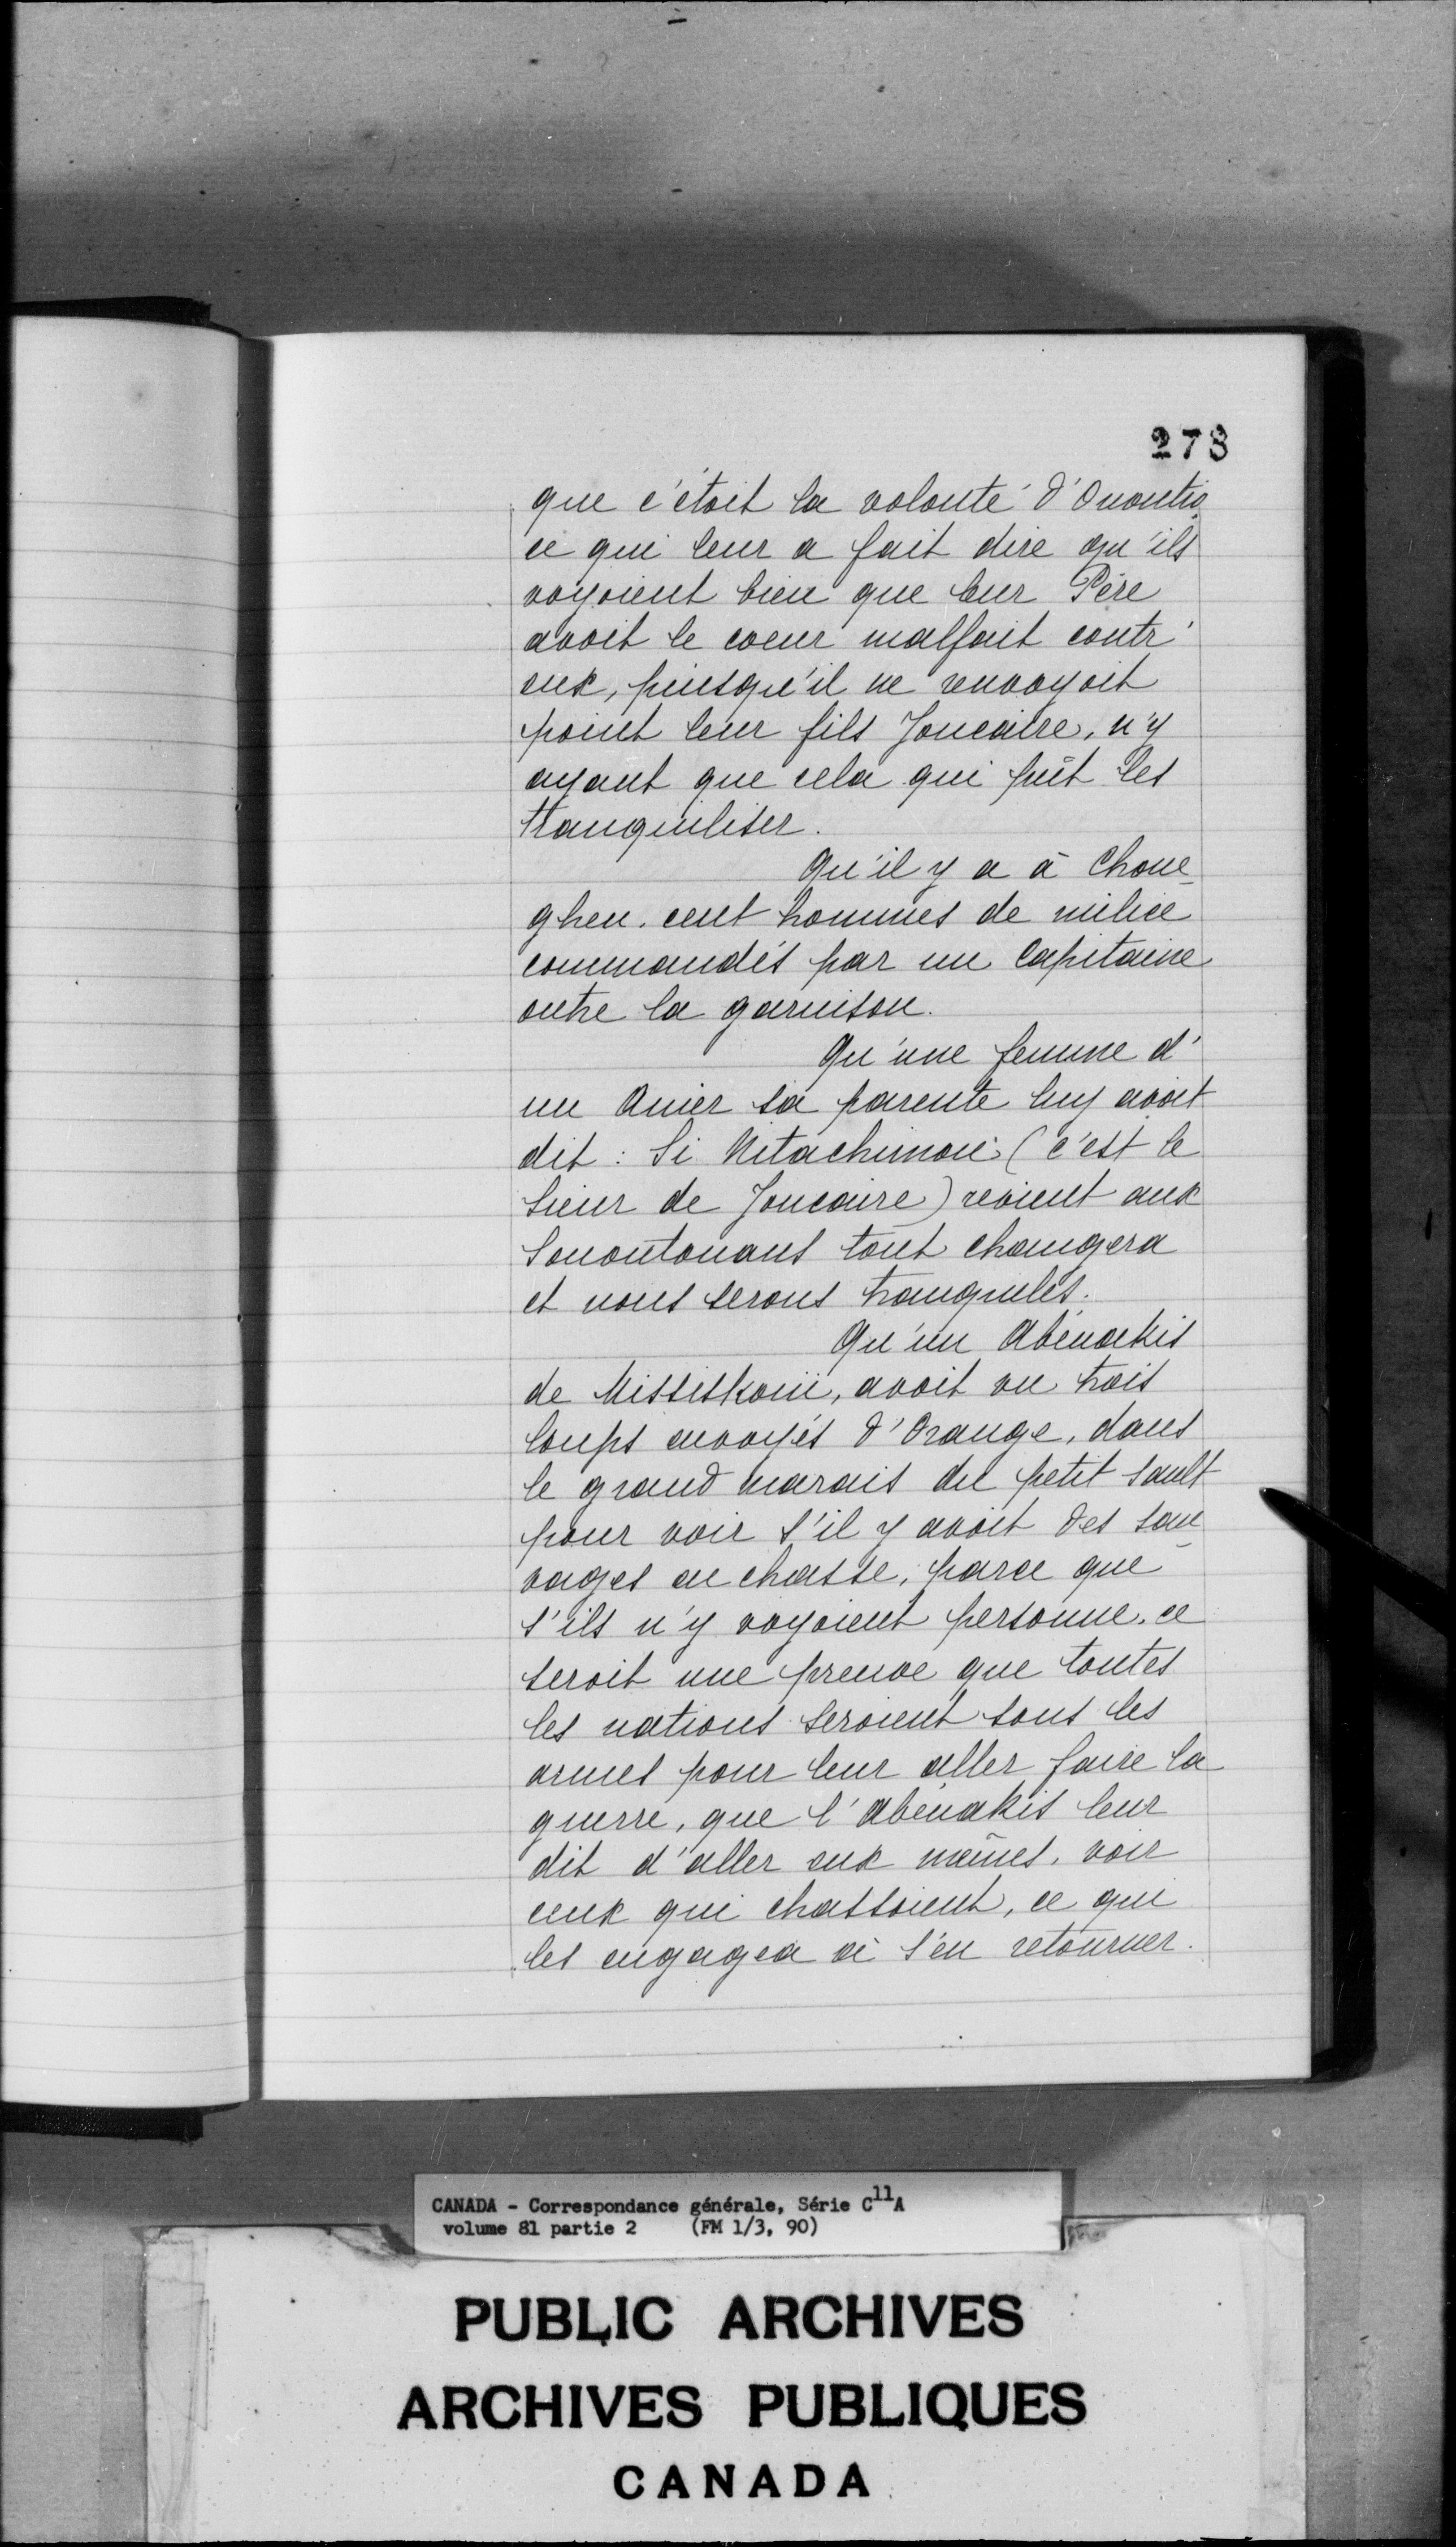 278
que c'étoit la volonté d'Onontio
ce qui leur a fait dire qu'ils
voyoient bien que leur Père
avoit le coeur malfait contr'
eux, puisqu'il ne renvoyoit
point leur fils Joncaire, n'y
ayant que cela qui pût les
tranquiliser.
Qu'il y a à Choue-
ghen. cent hommes de milice
commandés par un Capitaine
outre la garnison.
Qu'une femme d'
un Anier sa parente luy avoit
dit : Si Nitachinon (c'est le
Sieur de Joncaire) revient aux
Sonontouans tout changera
et nous serons tranquiles.
Qu'un Abénakis
de Missiskouii, avoit vu trois
loups envoyés d'Orange, dans
le grand marais du petit sault
pour voir s'il y avoit des sau-
vages en chasse, parce que
s'ils n'y voyoient personne, ce
seroit une preuve que toutes
les nations seroient sous les
armes pour leur aller faire la
guerre, que l'abénakis leur
dit d'aller eux mêmes, voir
ceux qui chassoient, ce qui
les engagea à s'en retourner.
CANADA - Correspondance générale, Série C11A
volume 81 partie 2 (FM 1/3, 90)
PUBLIC ARCHIVES
ARCHIVES PUBLIQUES
CANADA